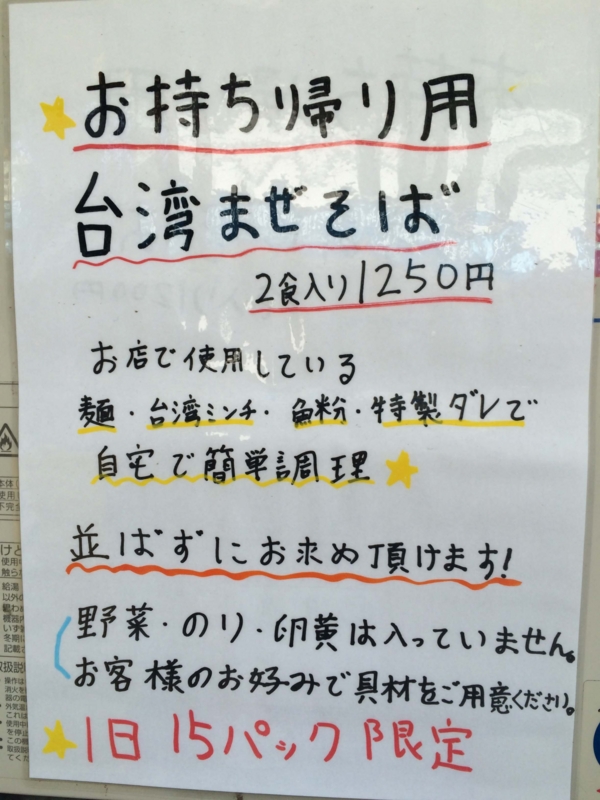 お持ち帰り用
台湾まぜそば
2食入り1250円
お店で使用している
麺・台湾ミンチ・魚粉・特製ダレで
自宅で簡単調理
並ばずにお求め頂けます!
野菜・のり・卵黄は入っていません。
お客様のお好みで具材をご用意ください。
1日15パック限定